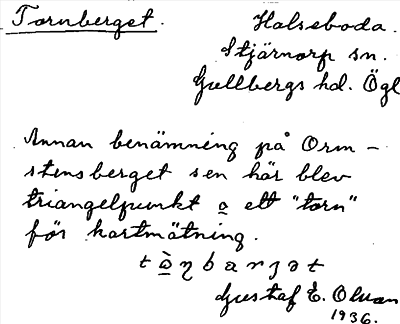 Tornberget. Halseboda.
Stjärnorp sn.
Gullbergs hd. Ögl
Annan benämning på Orm-
stensberget sen här blev
triangelpunkt o ett "torn"
för kartmätning.
Gustaf E. Olvan
1936.